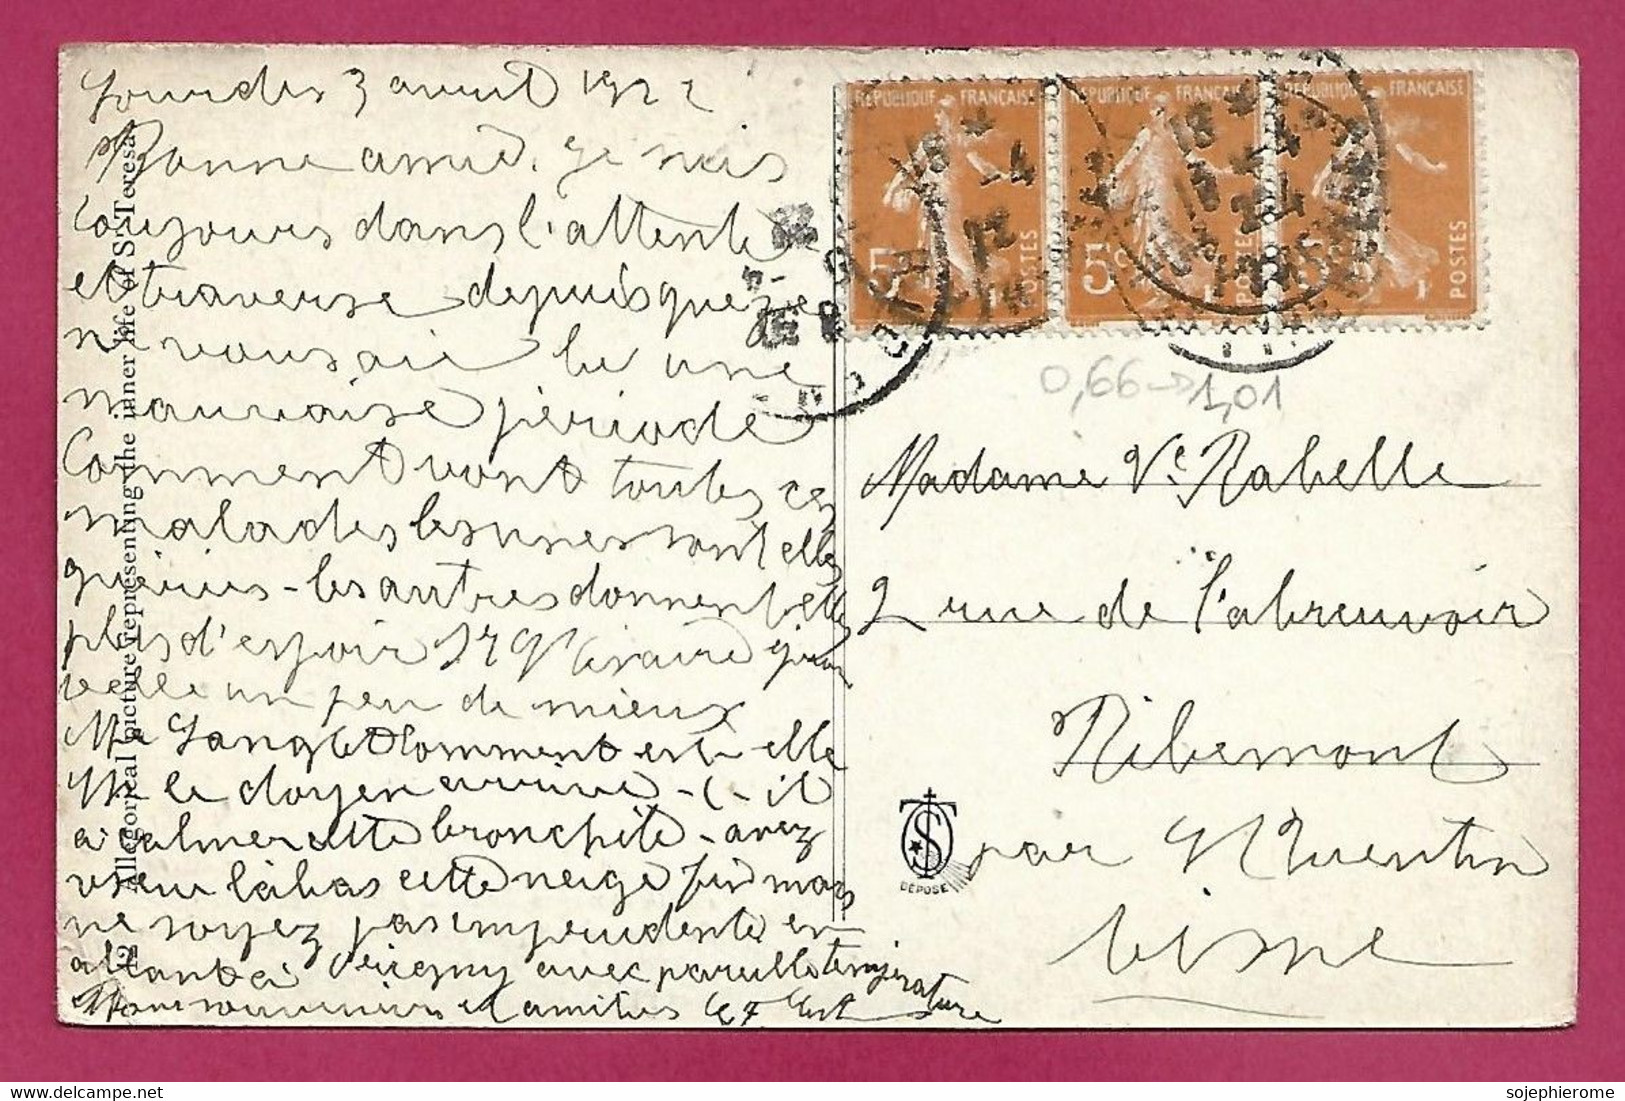 Lourdes 3 avril 1922
Bonne amie. Je suis
toujours dans l'attente
et traverse depuis que je
ne vous ai lu une
mauvaise période
Comment vont toutes ces
malades les unes sont elles
guéries - les autres donnent elles
plus d'espoir
un peu de mieux
Me Langlet Comment est-elle
Mr le doyen arrive-t-il
à calmer cette bronchite - avez
vs eu là bas cette neige fin mars
ne soyez pas imprudente en
allant à Origny avec pareille température
souvenirs et amitiés
12 Allegorical picture representing the inner life of St Teresa
REPUBLIQUE FRANÇAISE
5c
POSTES
REPUBLIQUE FRANÇAISE
5c
POSTES
REPUBLIQUE FRANÇAISE
POSTES
18
-4
0,66 → 1,01
Madame Ve Rabelle
2 rue de l'abreuvoir
Ribemont
par St Quentin
Aisne
DÉPOSÉ
delcampe.net
sojephierome